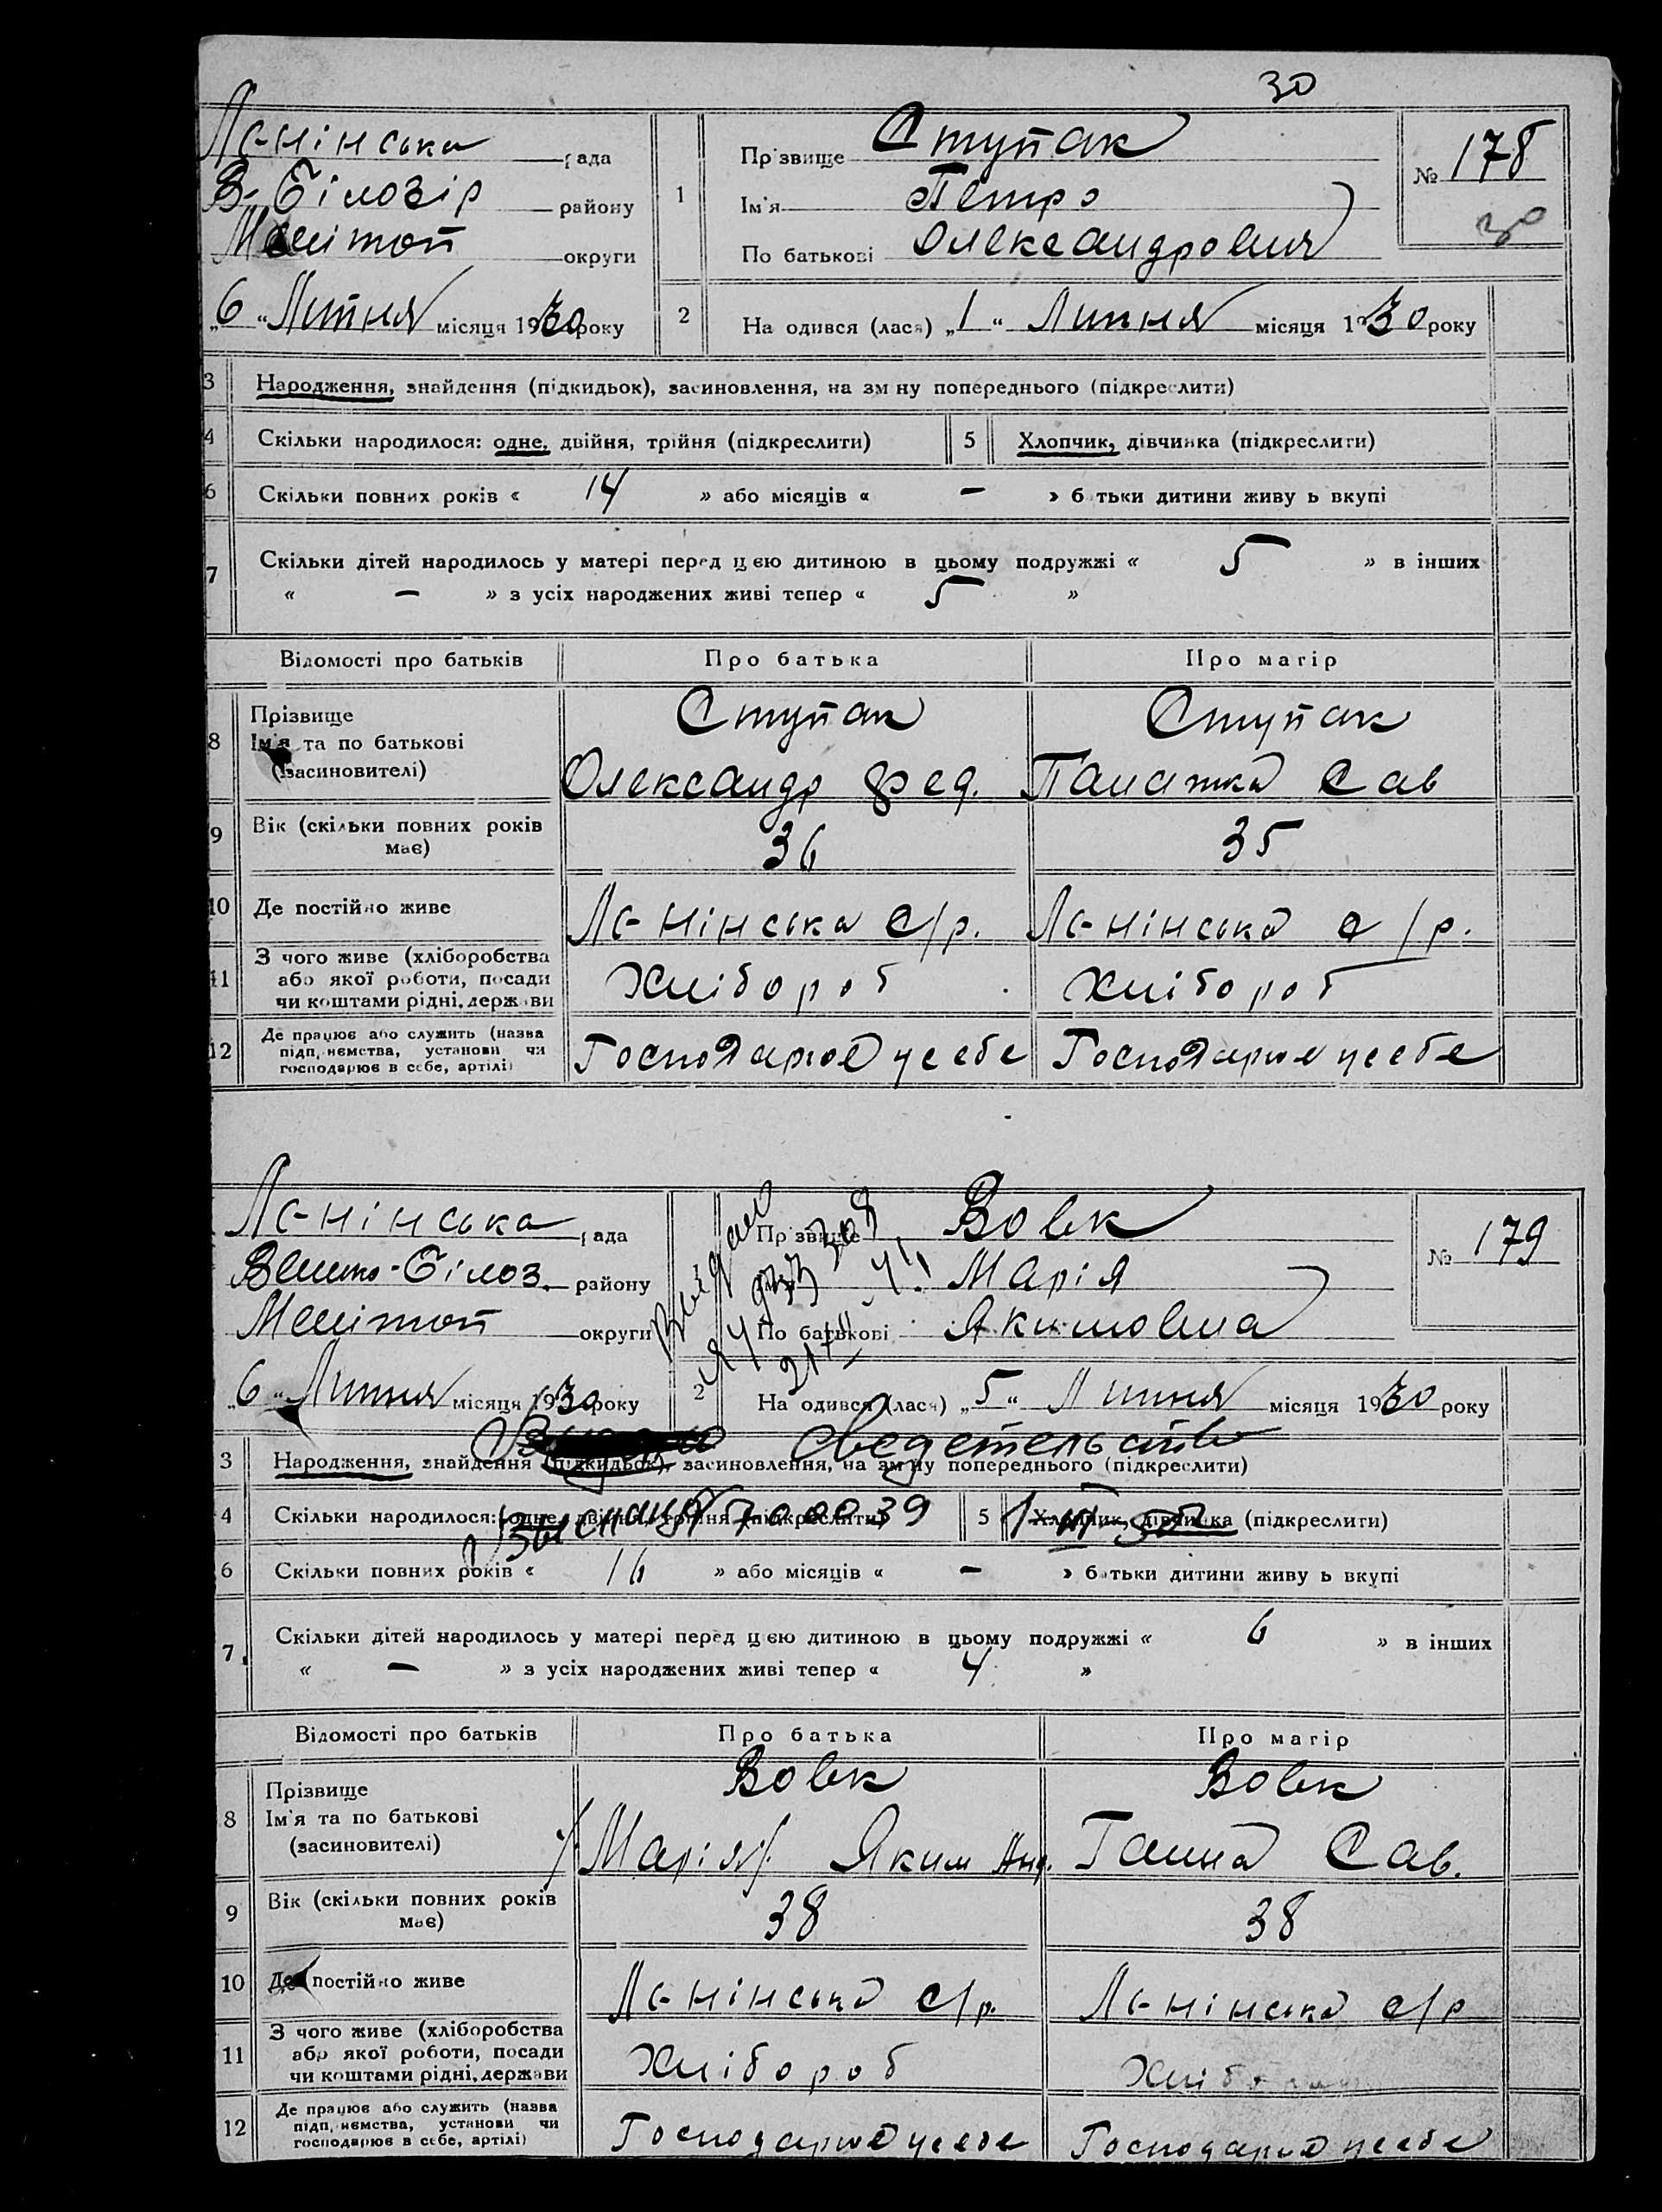 30
Ленінська рада
В. Білозір району
Мелітоп округи
„6“ Липня місяця 1930 року
1
Прізвище Ступак
Ім'я Петро
По батькові Олександрович
№ 178
30
2 На одився (лася) „1“ Липня місяця 1930 року
3 Народження, знайдення (підкидьок), засиновлення, на зм ну попереднього (підкреслити)
4 Скільки народилося: одне, двійня, трійня (підкреслити) 5 Хлопчик, дівчинка (підкреслити)
6 Скільки повних років « 14 » або місяців « — » б тьки дитини живу ь вкупі
7 Скільки дітей народилось у матері перед цією дитиною в цьому подружжі « 5 » в інших
« — » з усіх народжених живі тепер « 5 »
Відомості про батьків Про батька Про матір
8 Прізвище Ступак Ступак
Ім'я та по батькові
(засиновителі) Олександр Фед. Палажка Сав
9 Вік (скільки повних років
має) 36 35
10 Де постійно живе Ленінська с/р. Ленінська с/р.
11 З чого живе (хліборобства
або якої роботи, посади Хлібороб Хлібороб
чи коштами рідні, держави
12 Де працює або служить (назва
підп, иємства, установи чи Господарює у себе Господарює у себе
господарює в себе, артілі)
Ленінська рада
Велико-Білоз. району
Мелітоп округи
„6“ Липня місяця 1930 року
1
Прізвище Вовк
Ім'я Марія
По батькові Якимовна
№ 179
Выдан
2 На одився (лася) „5“ Липня місяця 1930 року
Сведетельство
3 Народження, знайдення (підкидьок), засиновлення, на зм ну попереднього (підкреслити)
4 Скільки народилося: одне, двійня, трійня (підкреслити) 5 Хлопчик, дівчинка (підкреслити)
700039
6 Скільки повних років « 16 » або місяців « — » батьки дитини живу ь вкупі
7 Скільки дітей народилось у матері перед цією дитиною в цьому подружжі « 6 » в інших
« — » з усіх народжених живі тепер « 4 »
Відомості про батьків Про батька Про матір
8 Прізвище Вовк Вовк
Ім'я та по батькові
(засиновителі) Марія Яким Анд. Ганна Сав.
9 Вік (скільки повних років
має) 38 38
10 Де постійно живе Ленінська с/р. Ленінська с/р
11 З чого живе (хліборобства
або якої роботи, посади Хлібороб
чи коштами рідні, держави
12 Де працює або служить (назва
підп, иємства, установи чи Господарює у себе Господарює у себе
господарює в себе, артілі)